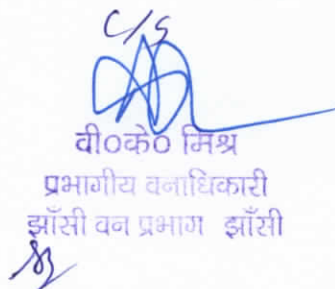 C/S
वी०के० मिश्र
प्रभागीय वनाधिकारी
झाँसी वन प्रभाग झाँसी